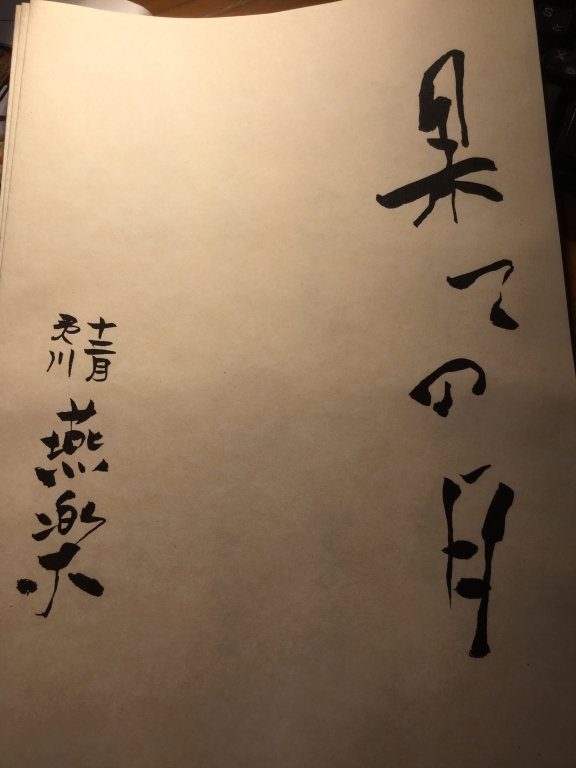 果ての月
十二月
川
燕楽